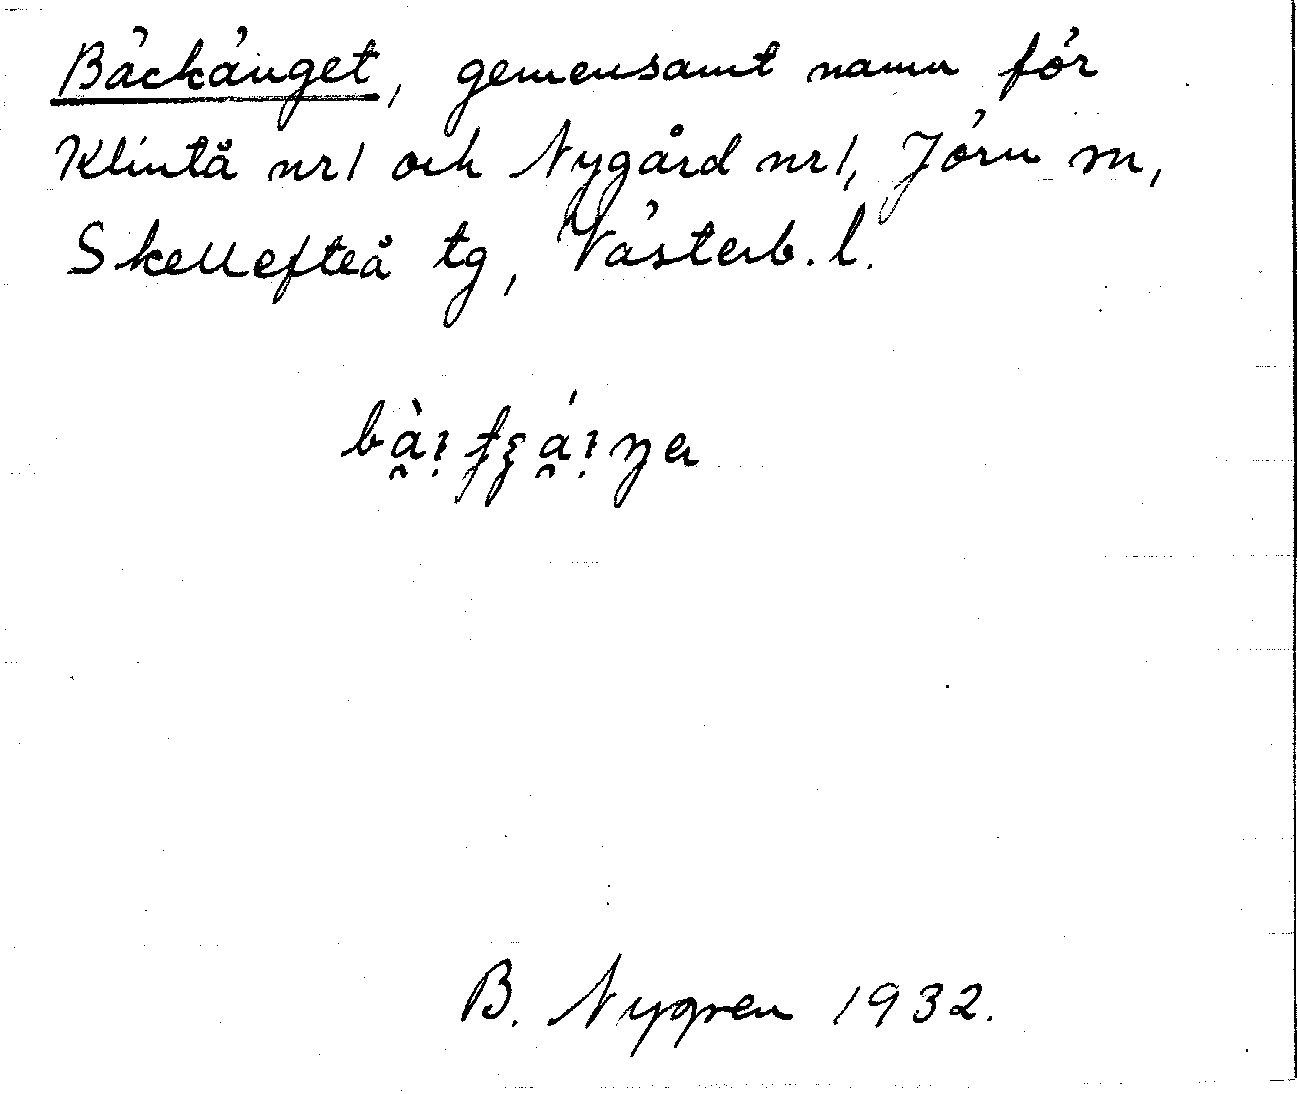 Bäckänget, gemensamt namn för
Klintå nr 1 och Nygård nr 1, Jörn sn,
Skellefteå tg, Västerb. l.
B. Nygren 1932.